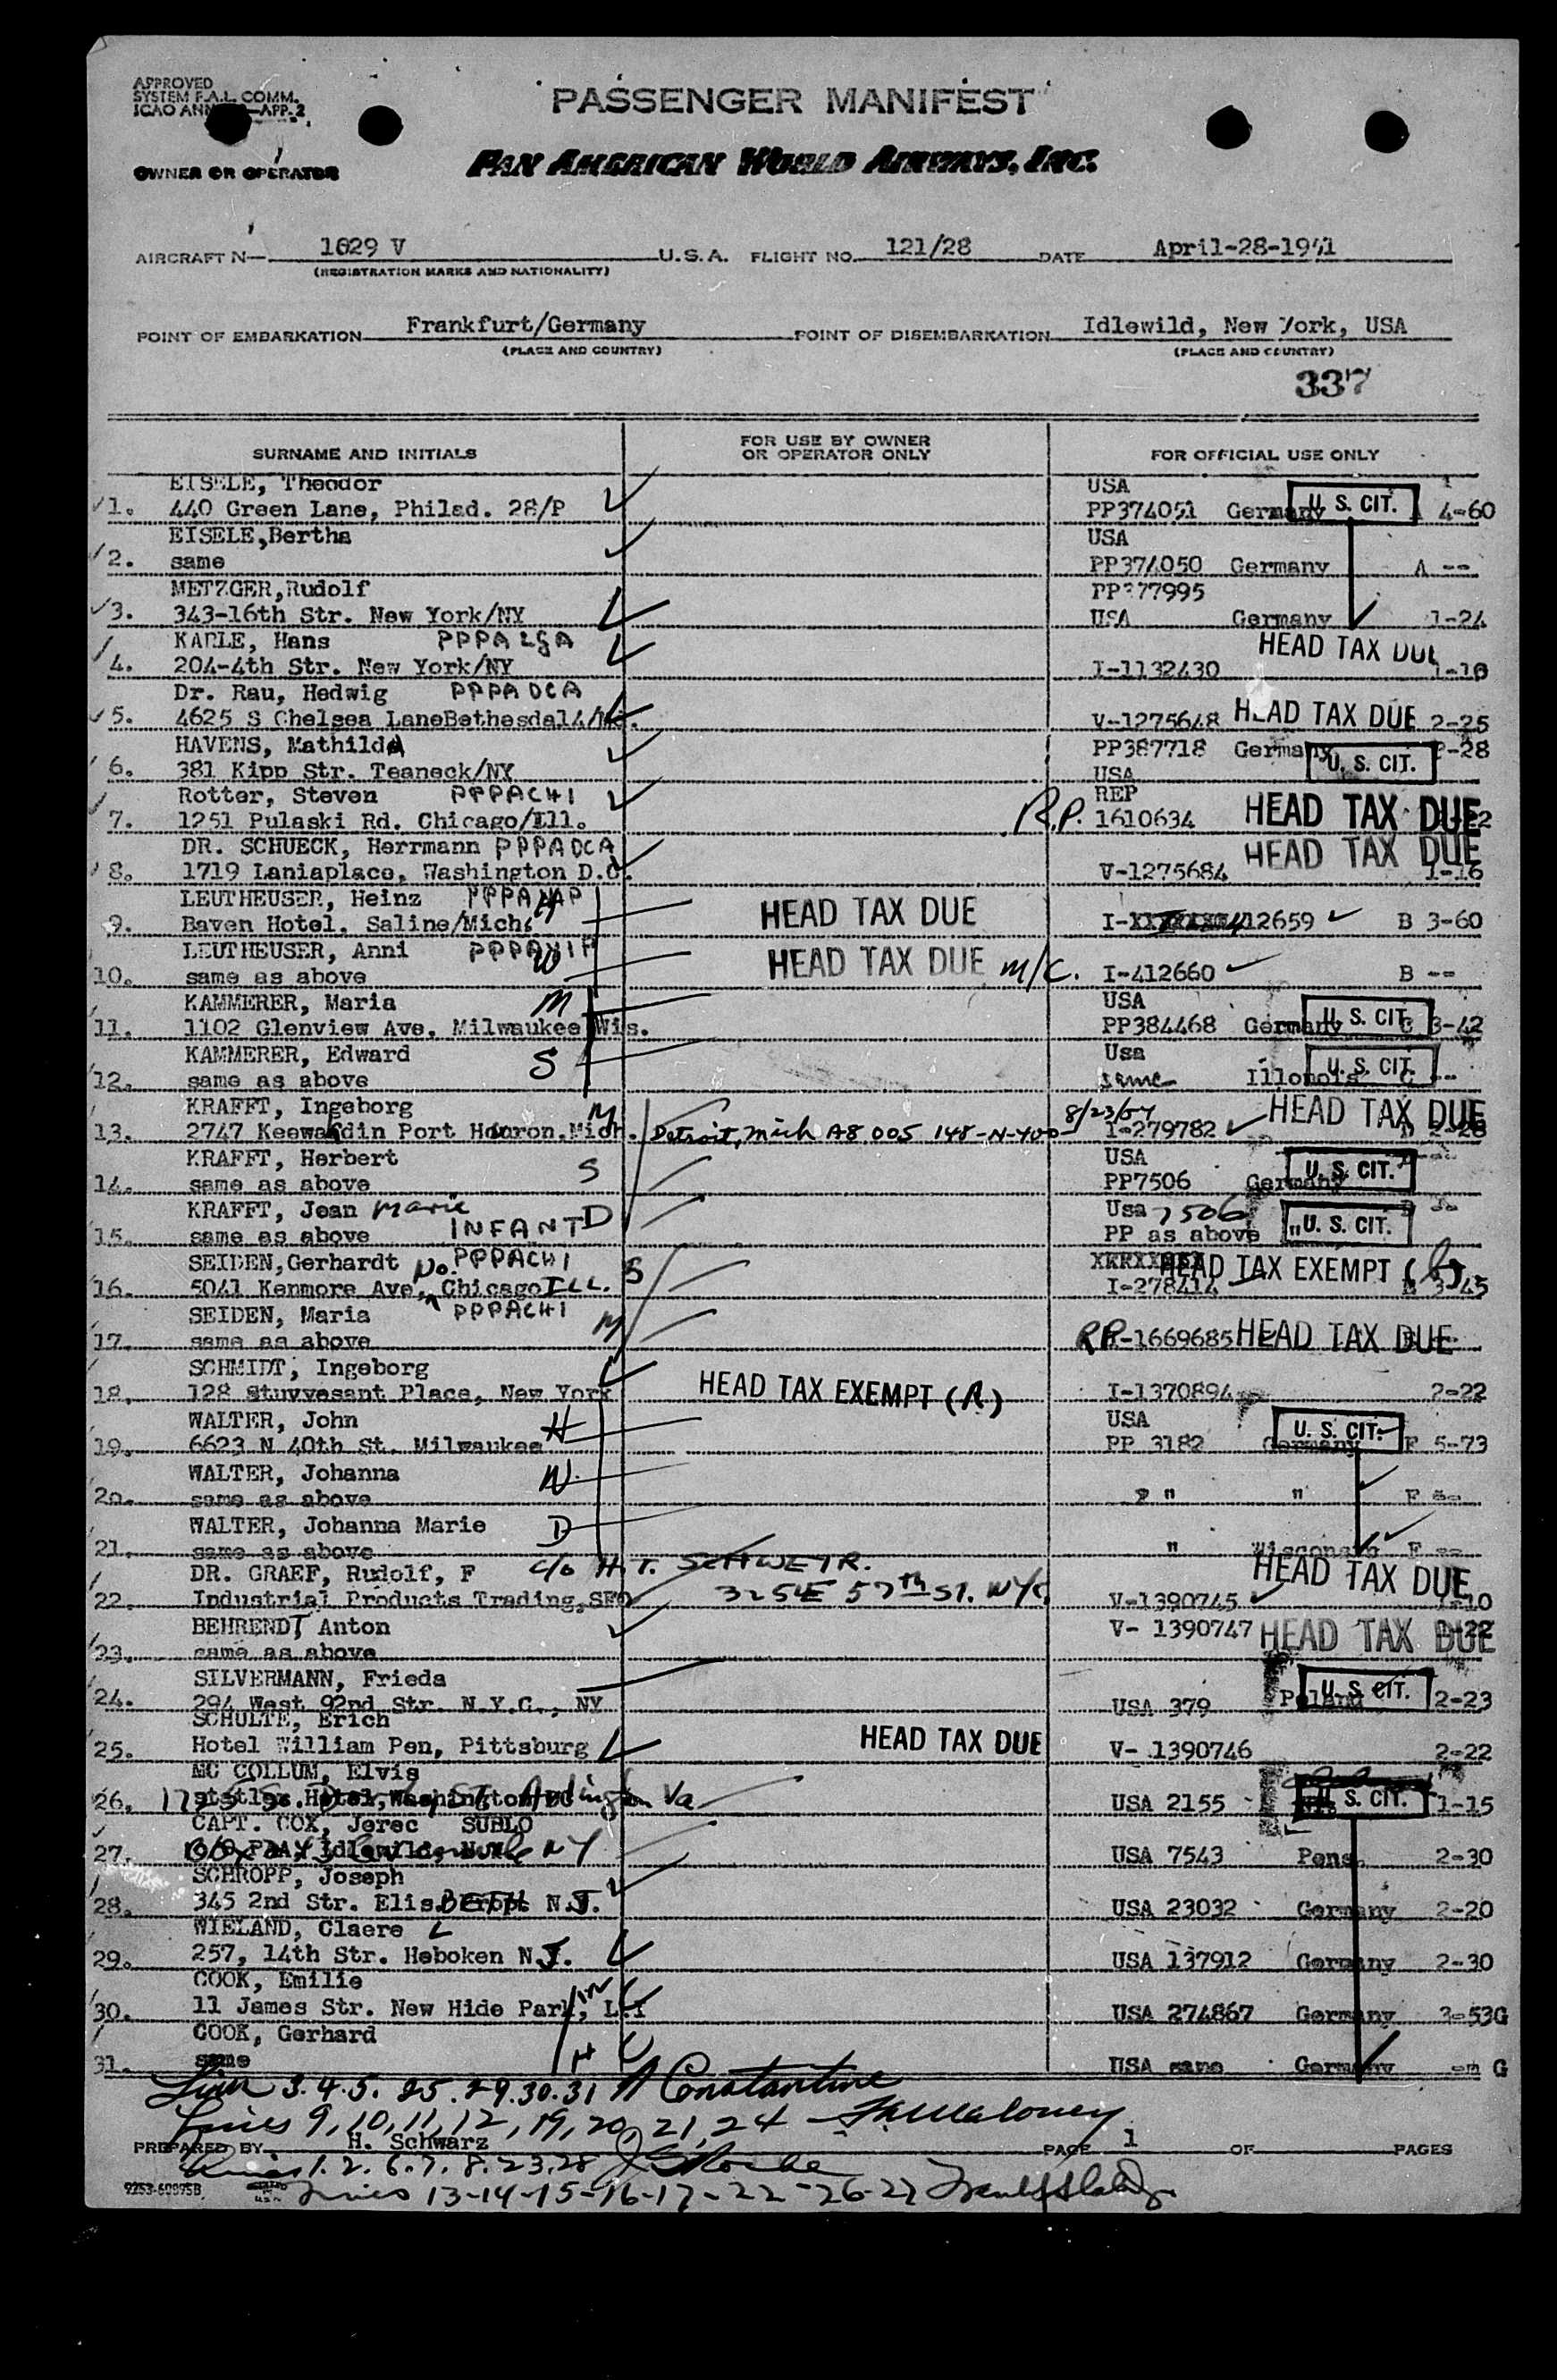 APPROVED
SYSTEM F.A.L. COMM.
ICAO —APP.2
PASSENGER MANIFEST
OWNER OR OPERATOR
PAN AMERICAN WORLD AIRWAYS, INC.
AIRCRAFT N— 1029 V U.S.A. FLIGHT NO. 121/28 DATE April-28-1951
(REGISTRATION MARKS AND NATIONALITY)
POINT OF EMBARKATION Frankfurt/Germany POINT OF DISEMBARKATION Idlewild, New York, USA
(PLACE AND COUNTRY) (PLACE AND COUNTRY)
337
SURNAME AND INITIALS FOR USE BY OWNER OR OPERATOR ONLY FOR OFFICIAL USE ONLY
EISELE, Theodor USA
1. 440 Green Lane, Philad. 28/P PP374051 Germany U. S. CIT. A 4-60
EISELE,Bertha USA
2. same PP374050 Germany A --
METZGER,Rudolf PP377995
3. 343-16th Str. New York/NY USA Germany 1-24
KARLE, Hans HEAD TAX DUE
4. 204-4th Str. New York/NY I-1132430 1-16
Dr. Rau, Hedwig PPPA DCA
5. 4625 S Chelsea LaneBethesda14/ V-1275648 HEAD TAX DUE 2-25
HAVENS, MathildA PP387718 Germany 2-28
6. 381 Kipp Str. Teaneck/NY USA U. S. CIT.
Rotter, Steven PPPACHI REP
7. 1251 Pulaski Rd. Chicago/Ill. R.P. 1610634 HEAD TAX DUE
DR. SCHUECK, Herrmann PPPA DCA HEAD TAX DUE
8. 1719 Laniaplace, Washington D.C. V-1275684 1-16
LEUTHEUSER, Heinz H HEAD TAX DUE
9. Baven Hotel, Saline/Mich. I-412659 B 3-60
LEUTHEUSER, Anni W HEAD TAX DUE M/C.
10. same as above I-412660 B --
KAMMERER, Maria M USA
11. 1102 Glenview Ave, Milwaukee Wis. PP384468 Germany U. S. CIT. C 3-42
KAMMERER, Edward S Usa U. S. CIT.
12. same as above same Illonois C --
KRAFFT, Ingeborg M 8/23/54 HEAD TAX DUE
13. 2747 Keewahdin Port Houron,Mich. Detroit, Mich A8 005 148-N-400- I-279782 D 2-28
KRAFFT, Herbert S USA
14. same as above PP7506 Germany U. S. CIT.
KRAFFT, Jean Marie Usa 7506
15. same as above INFANT D PP as above " U. S. CIT.
SEIDEN,Gerhardt No. PPPACHI S HEAD TAX EXEMPT (b)
16. 5041 Kenmore Ave, Chicago ILL. I-278414 E 3-45
SEIDEN, Maria PPPACHI M
17. same as above RP-1669685 HEAD TAX DUE
SCHMIDT, Ingeborg HEAD TAX EXEMPT (A)
18. 128 Stuyvesant Place, New York I-1370894 2-22
WALTER, John H USA U. S. CIT.
19. 6623 N 40th St. Milwaukee PP 3182 Germany F 5-73
WALTER, Johanna W.
20. same as above " " F --
WALTER, Johanna Marie D
21. same as above " Wisconsin F --
DR. GRAEF, Rudolf, F c/o H.T. SCHWEIR. HEAD TAX DUE
22. Industrial Products Trading,SFO 325 E 57th St. NYC V-1390745 1-10
BEHRENDT Anton V- 1390747 HEAD TAX DUE 2-22
23. same as above
SILVERMANN, Frieda U. S. CIT.
24. 294 West 92nd Str. N.Y.C., NY USA 379 Poland 2-23
SCHULTE, Erich HEAD TAX DUE
25. Hotel William Pen, Pittsburg V- 1390746 2-22
MC COLLUM, Elvis
26. Statler Hotel,Washington Arlington Va USA 2155 U. S. CIT. 1-15
CAPT. COX, Jerec SUBLO
27. NY USA 7543 Pens. 2-30
SCHROPP, Joseph
28. 345 2nd Str. ElisBETH N.J. USA 23032 Germany 2-20
WIELAND, Claere L
29. 257, 14th Str. Hoboken N.J. USA 137912 Germany 2-30
COOK, Emilie
30. 11 James Str. New Hide Park, L.I USA 274867 Germany 3-53G
COOK, Gerhard H
31. same USA same Germany -- G
3.4.5. 25.29.30.31 A Constantine
Lines 9,10,11,12,19,20,21,24 Maloney
PREPARED BY H. Schwarz PAGE 1 OF PAGES
Lines 1.2.6.7.8.23.28
9253-60895B
Lines 13-14-15-16-17-22-26-27